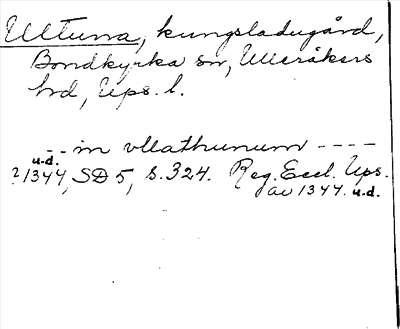 Ultuna, kungsladugård,
Bondkyrka sn, Ulleråkers
hd, Ups. l.
-- in vllathunum ----
u.d.
? 1344, SD 5, s. 324. Reg. Eccl. Ups.
av 1344. u.d.